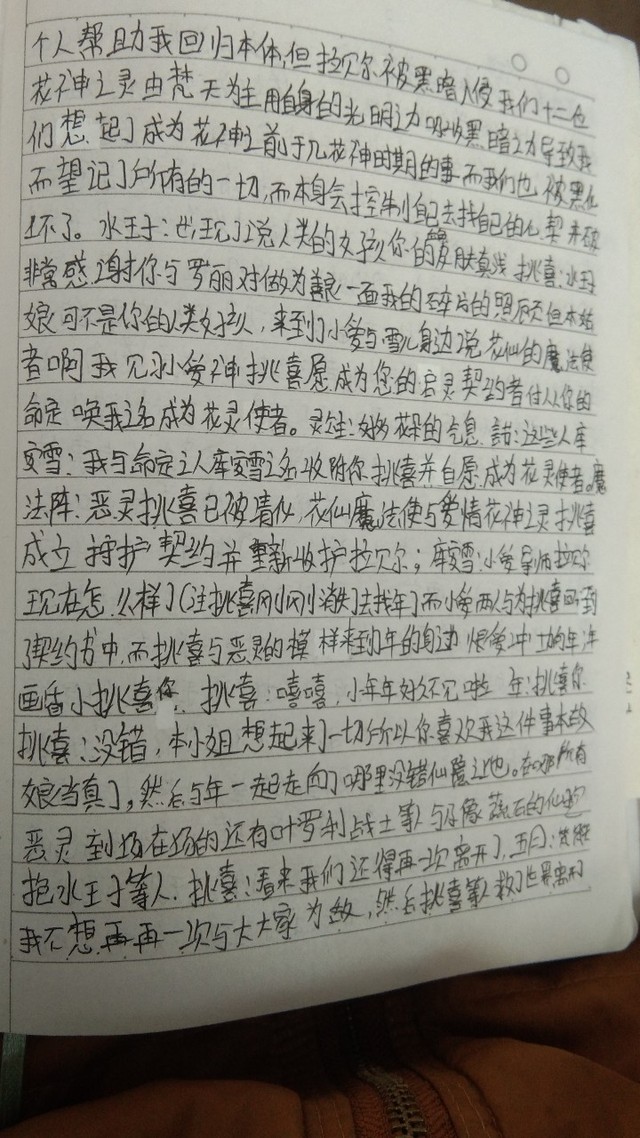 个人帮助我回归本体,但拉贝尔被黑暗入侵我们十二位
花神之灵由梵天为主用自身的光明之力吸收黑暗之力导致我
们想起了成为花神之前于几花神时期的事而我们也被黑化
而望记了所有的一切,而本身会控制自己去找自己的
坏了。水王子:也 说人类的女孩你的皮肤真浅 挑喜:水王
非常感谢你与罗丽对做为善良一面我的碎片的照顾但本姑
娘可不是你的人类女孩,来到了小爱与雪儿身边说花仙的魔法使
者啊我 小爱神挑喜愿成为您的启灵契约者付从你的
命定唤我之名成为花灵使者。灵 :好多花的气息 这些人库
安雪:我与命定之人库安雪之名收附你挑喜并自愿成为花灵使者。魔
法阵:恶灵挑喜已被清化,花仙魔法使与爱情花神之灵挑喜
成立 护契约并重新收护拉贝尔;库安雪:小爱导师拉贝尔
现在怎么样了(注挑喜刚刚消失了去找年)而小爱两人与为挑喜回到
了契约书中,而挑喜与恶灵的模样来到年的身边 年
画香小挑喜你. 挑喜:嘻嘻,小年年好久不见啦 年:挑喜你
挑喜:没错,本小姐想起来了一切所以你喜欢我这件事本故
娘当真了,然后与年一起走向了哪里没错仙 之地。在哪所有
恶灵到场在场的还有叶罗利战士等人与 像 石的仙
抱水王子等人.挑喜:看来我们还得再一次离开了,
我不想再再一次与大大家为敌,然后挑喜等人救了世界离开